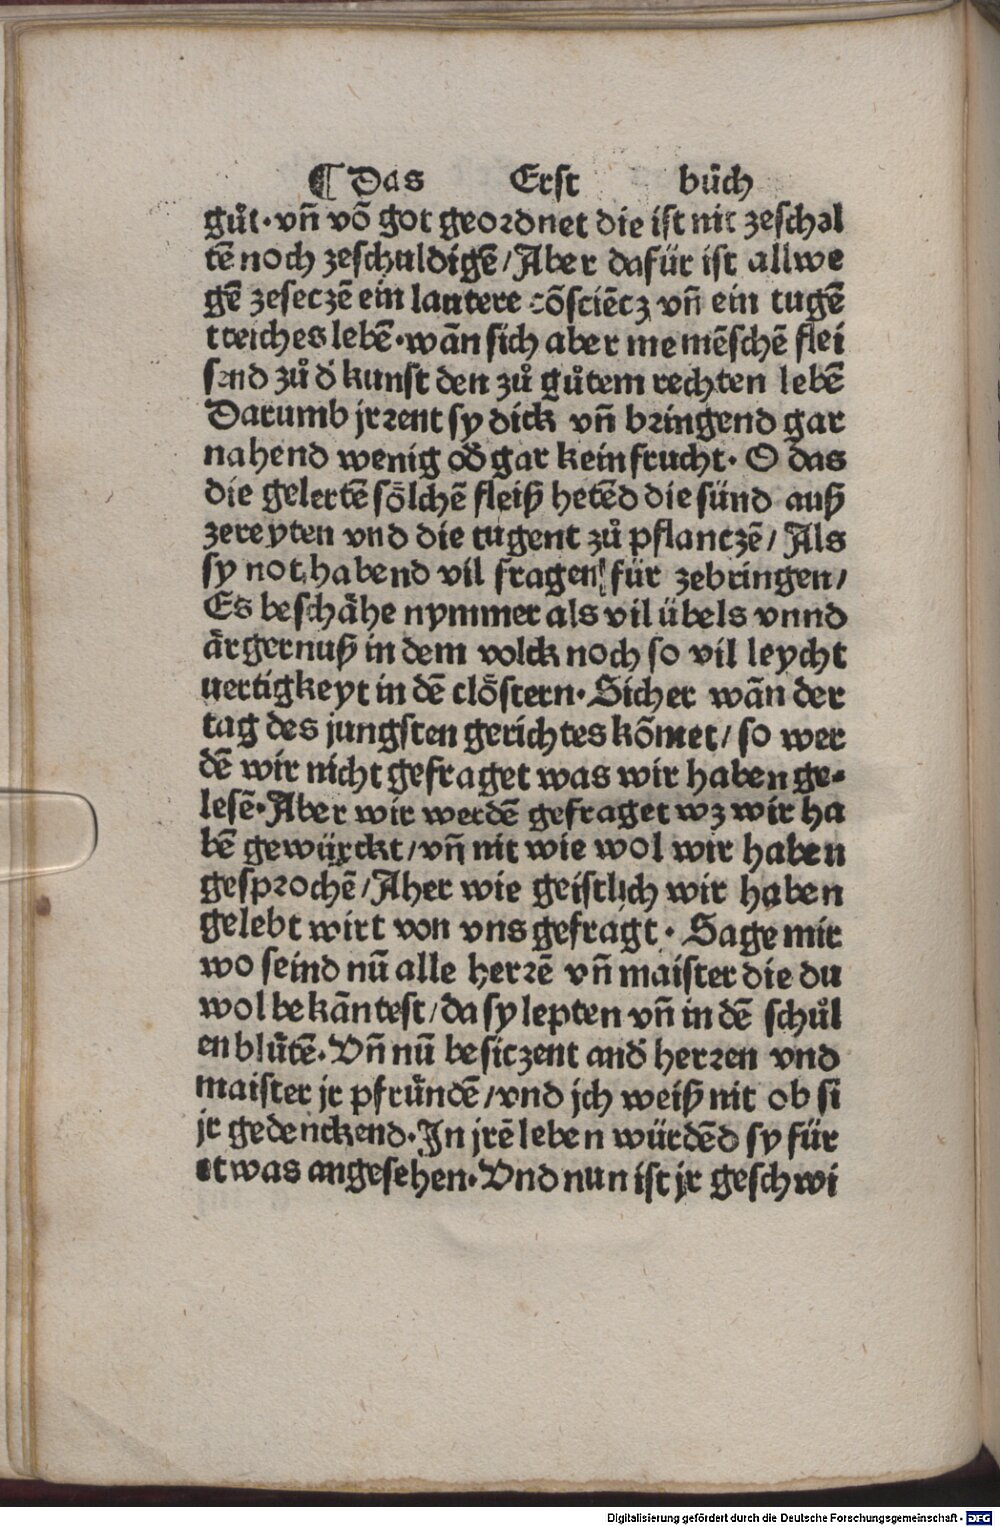 ¶ Das Erst bůch
gůt. vñ võ got geordnet die ist nit zeschal
tē noch zeschuldigē / Aber dafür ist allwe
gē zeseczē ein lautere cõsciēcz vñ ein tugē
treiches lebē. wãn sich aber me mēschē flei
send zů d' kunst den zů gůtem rechten lebē
Darumb jrrent sy dick vñ bringend gar
nahend wenig od' gar kein frucht. O das
die gelertē sõlchē fleiß hetēd die sünd auß
zereyten vnd die tugent zů pflantzē / Als
sy not habend vil fragen für zebringen /
Es beschähe nymmer als vil übels vnnd
ärgernuß in dem volck noch so vil leycht
uertigkeyt in dē clöstern. Sicher wãn der
tag des jungsten gerichtes kõmet / so wer
dē wir nicht gefraget was wir haben ge-
lesē. Aber wir werdē gefraget wz wir ha
bē gewürckt / vñ nit wie wol wir haben
gesprochē / Aher wie geistlich wir haben
gelebt wirt von vns gefragt. Sage mir
wo seind nū alle herrē vñ maister die du
wol bekãntest / da sy lepten vñ in dē schůl
en blůtē. Vñ nū besiczent and' herren vnd
maister jr pfründē / vnd jch weiß nit ob si
jr gedenckend. In jrē leben würdēd sy für
etwas angesehen. Vnd nun ist jr geschwi
Digitalisierung gefördert durch die Deutsche Forschungsgemeinschaft - DFG